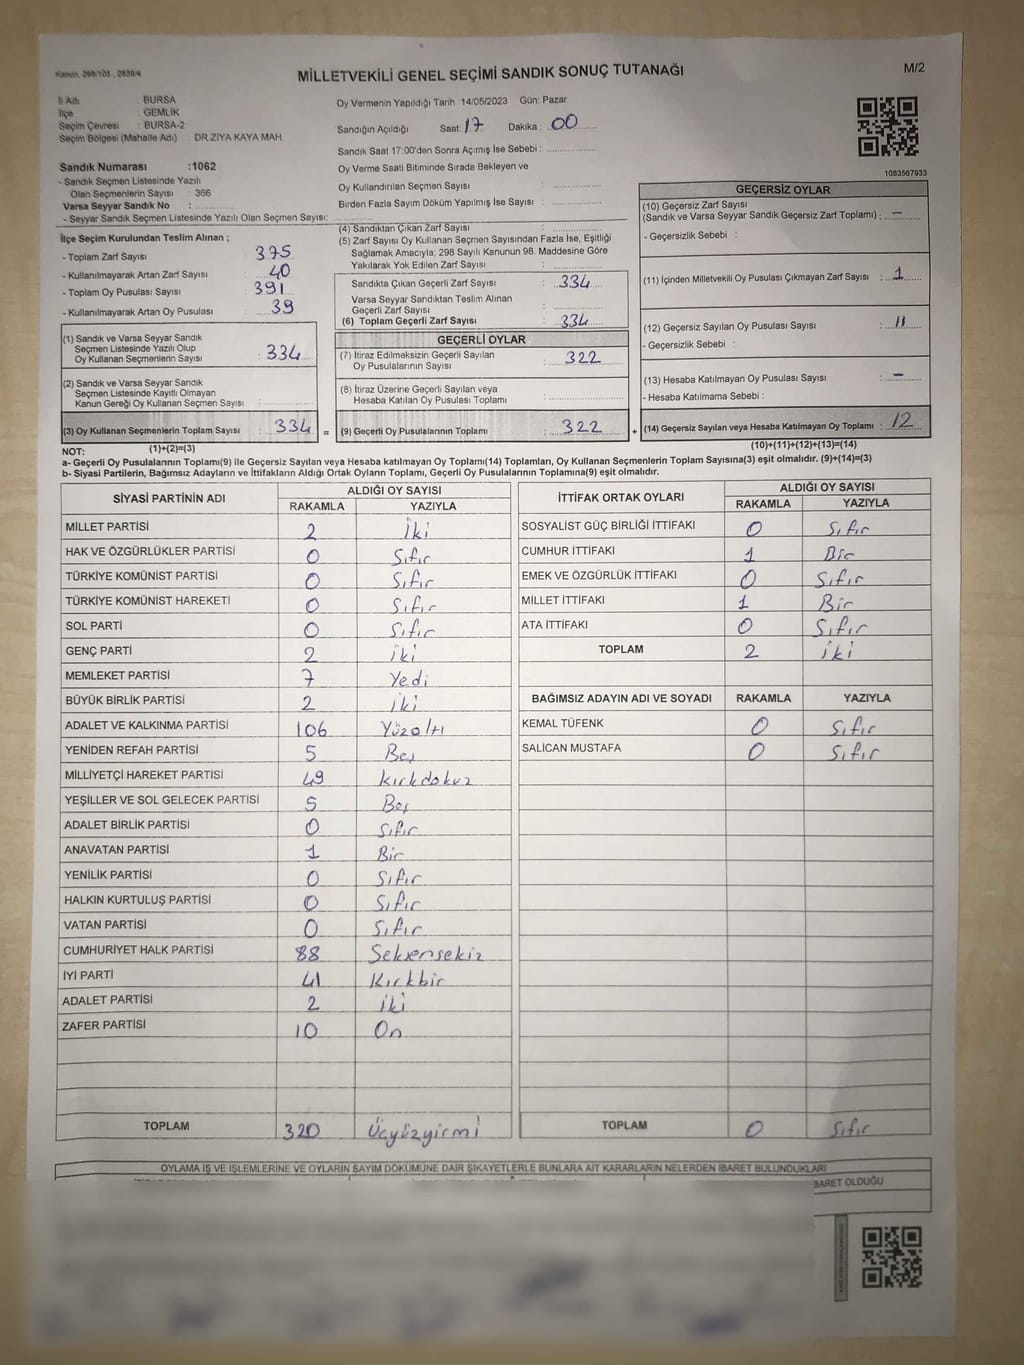 Kanun, 298/105 , 2839/4
MİLLETVEKİLİ GENEL SEÇİMİ SANDIK SONUÇ TUTANAĞI
M/2
İl Adı : BURSA
İlçe : GEMLİK
Seçim Çevresi : BURSA-2
Seçim Bölgesi (Mahalle Adı) : DR.ZİYA KAYA MAH
Oy Vermenin Yapıldığı Tarih :14/05/2023 Gün: Pazar
Sandığın Açıldığı Saat: 17 Dakika : 00
Sandık Saat 17:00'den Sonra Açımış İse Sebebi :
Oy Verme Saati Bitiminde Sırada Bekleyen ve
Oy Kullandırılan Seçmen Sayısı :
Birden Fazla Sayım Döküm Yapılmış İse Sayısı :
1083567933
Sandık Numarası :1062
- Sandık Seçmen Listesinde Yazılı
Olan Seçmenlerin Sayısı : 366
Varsa Seyyar Sandık No :
- Seyyar Sandık Seçmen Listesinde Yazılı Olan Seçmen Sayısı:
İlçe Seçim Kurulundan Teslim Alınan ;
- Toplam Zarf Sayısı : 375
- Kullanılmayarak Artan Zarf Sayısı : 40
- Toplam Oy Pusulası Sayısı : 391
- Kullanılmayarak Artan Oy Pusulası : 39
(1) Sandık ve Varsa Seyyar Sandık
Seçmen Listesinde Yazılı Olup
Oy Kullanan Seçmenlerin Sayısı : 334
(2) Sandık ve Varsa Seyyar Sandık
Seçmen Listesinde Kayıtlı Olmayan
Kanun Gereği Oy Kullanan Seçmen Sayısı :
(3) Oy Kullanan Seçmenlerin Toplam Sayısı : 334 =
(4) Sandıktan Çıkan Zarf Sayısı :
(5) Zarf Sayısı Oy Kullanan Seçmen Sayısından Fazla İse, Eşitliği
Sağlamak Amacıyla; 298 Sayılı Kanunun 98. Maddesine Göre
Yakılarak Yok Edilen Zarf Sayısı :
Sandıkta Çıkan Geçerli Zarf Sayısı : 334
Varsa Seyyar Sandıktan Teslim Alınan
Geçerli Zarf Sayısı :
(6) Toplam Geçerli Zarf Sayısı : 334
GEÇERLİ OYLAR
(7) İtiraz Edilmeksizin Geçerli Sayılan
Oy Pusulalarının Sayısı : 322
(8) İtiraz Üzerine Geçerli Sayılan veya
Hesaba Katılan Oy Pusulası Toplamı :
(9) Geçerli Oy Pusulalarının Toplamı : 322 +
GEÇERSİZ OYLAR
(10) Geçersiz Zarf Sayısı
(Sandık ve Varsa Seyyar Sandık Geçersiz Zarf Toplamı) : –
- Geçersizlik Sebebi :
(11) İçinden Milletvekili Oy Pusulası Çıkmayan Zarf Sayısı : 1
(12) Geçersiz Sayılan Oy Pusulası Sayısı : 11
- Geçersizlik Sebebi :
(13) Hesaba Katılmayan Oy Pusulası Sayısı : –
- Hesaba Katılmama Sebebi :
(14) Geçersiz Sayılan veya Hesaba Katılmayan Oy Toplamı : 12
NOT: (1)+(2)=(3) (10)+(11)+(12)+(13)=(14)
a- Geçerli Oy Pusulalarının Toplamı(9) ile Geçersiz Sayılan veya Hesaba katılmayan Oy Toplamı(14) Toplamları, Oy Kullanan Seçmenlerin Toplam Sayısına(3) eşit olmalıdır. (9)+(14)=(3)
b- Siyasi Partilerin, Bağımsız Adayların ve İttifakların Aldığı Ortak Oyların Toplamı, Geçerli Oy Pusulalarının Toplamına(9) eşit olmalıdır.
SİYASİ PARTİNİN ADI ALDIĞI OY SAYISI
RAKAMLA YAZIYLA
MİLLET PARTİSİ 2 İki
HAK VE ÖZGÜRLÜKLER PARTİSİ 0 Sıfır
TÜRKİYE KOMÜNİST PARTİSİ 0 Sıfır
TÜRKİYE KOMÜNİST HAREKETİ 0 Sıfır
SOL PARTİ 0 Sıfır
GENÇ PARTİ 2 iki
MEMLEKET PARTİSİ 7 Yedi
BÜYÜK BİRLİK PARTİSİ 2 iki
ADALET VE KALKINMA PARTİSİ 106 Yüzaltı
YENİDEN REFAH PARTİSİ 5 Beş
MİLLİYETÇİ HAREKET PARTİSİ 49 kırkdokuz
YEŞİLLER VE SOL GELECEK PARTİSİ 5 Beş
ADALET BİRLİK PARTİSİ 0 Sıfır
ANAVATAN PARTİSİ 1 Bir
YENİLİK PARTİSİ 0 Sıfır
HALKIN KURTULUŞ PARTİSİ 0 Sıfır
VATAN PARTİSİ 0 Sıfır
CUMHURİYET HALK PARTİSİ 88 Seksensekiz
İYİ PARTİ 41 Kırkbir
ADALET PARTİSİ 2 iki
ZAFER PARTİSİ 10 On
TOPLAM 320 Üçyüzyirmi
İTTİFAK ORTAK OYLARI ALDIĞI OY SAYISI
RAKAMLA YAZIYLA
SOSYALİST GÜÇ BİRLİĞİ İTTİFAKI 0 Sıfır
CUMHUR İTTİFAKI 1 Bir
EMEK VE ÖZGÜRLÜK İTTİFAKI 0 Sıfır
MİLLET İTTİFAKI 1 Bir
ATA İTTİFAKI 0 Sıfır
TOPLAM 2 iki
BAĞIMSIZ ADAYIN ADI VE SOYADI RAKAMLA YAZIYLA
KEMAL TÜFENK 0 Sıfır
SALİCAN MUSTAFA 0 Sıfır
TOPLAM 0 Sıfır
OYLAMA İŞ VE İŞLEMLERİNE VE OYLARIN SAYIM DÖKÜMÜNE DAİR ŞİKAYETLERLE BUNLARA AİT KARARLARIN NELERDEN İBARET BULUNDUKLARI
BARET OLDUĞU